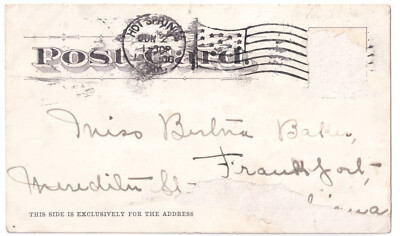 HOT SPRINGS
JUN 2
130P
Post Card.
Miss Bertha Baker,
Frankfort,
Meredith St-
THIS SIDE IS EXCLUSIVELY FOR THE ADDRESS